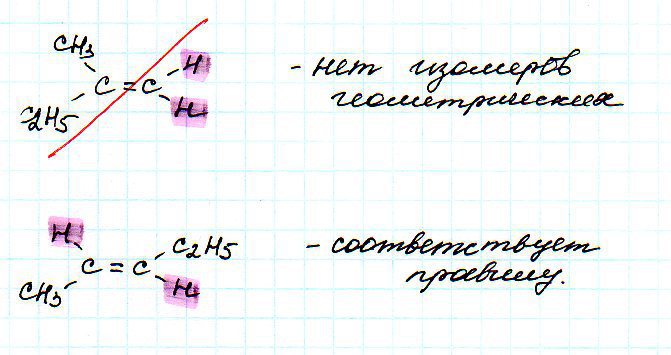 CH3 H
C = C
C2H5 H
- нет изомеров
геометрических
H C2H5
C = C
CH3 H
- соответствует
правилу.